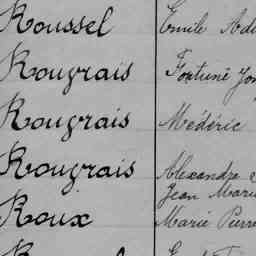 Roussel Emile
Rougrais Fortuné
Rougrais Médéric
Rougrais Alexandre
Jean Marie
Roux Marie Pierre